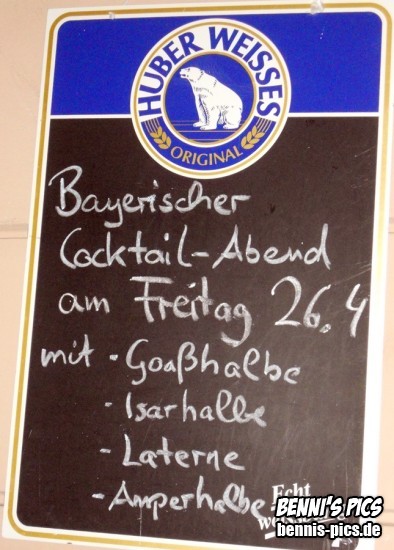 HUBER WEISSES
ORIGINAL
Bayerischer
Cocktail-Abend
am Freitag 26.4
mit - Goaßhalbe
- Isarhalbe
- Laterne
- Amperhalbe
Echt
BENNI'S PICS
bennis-pics.de